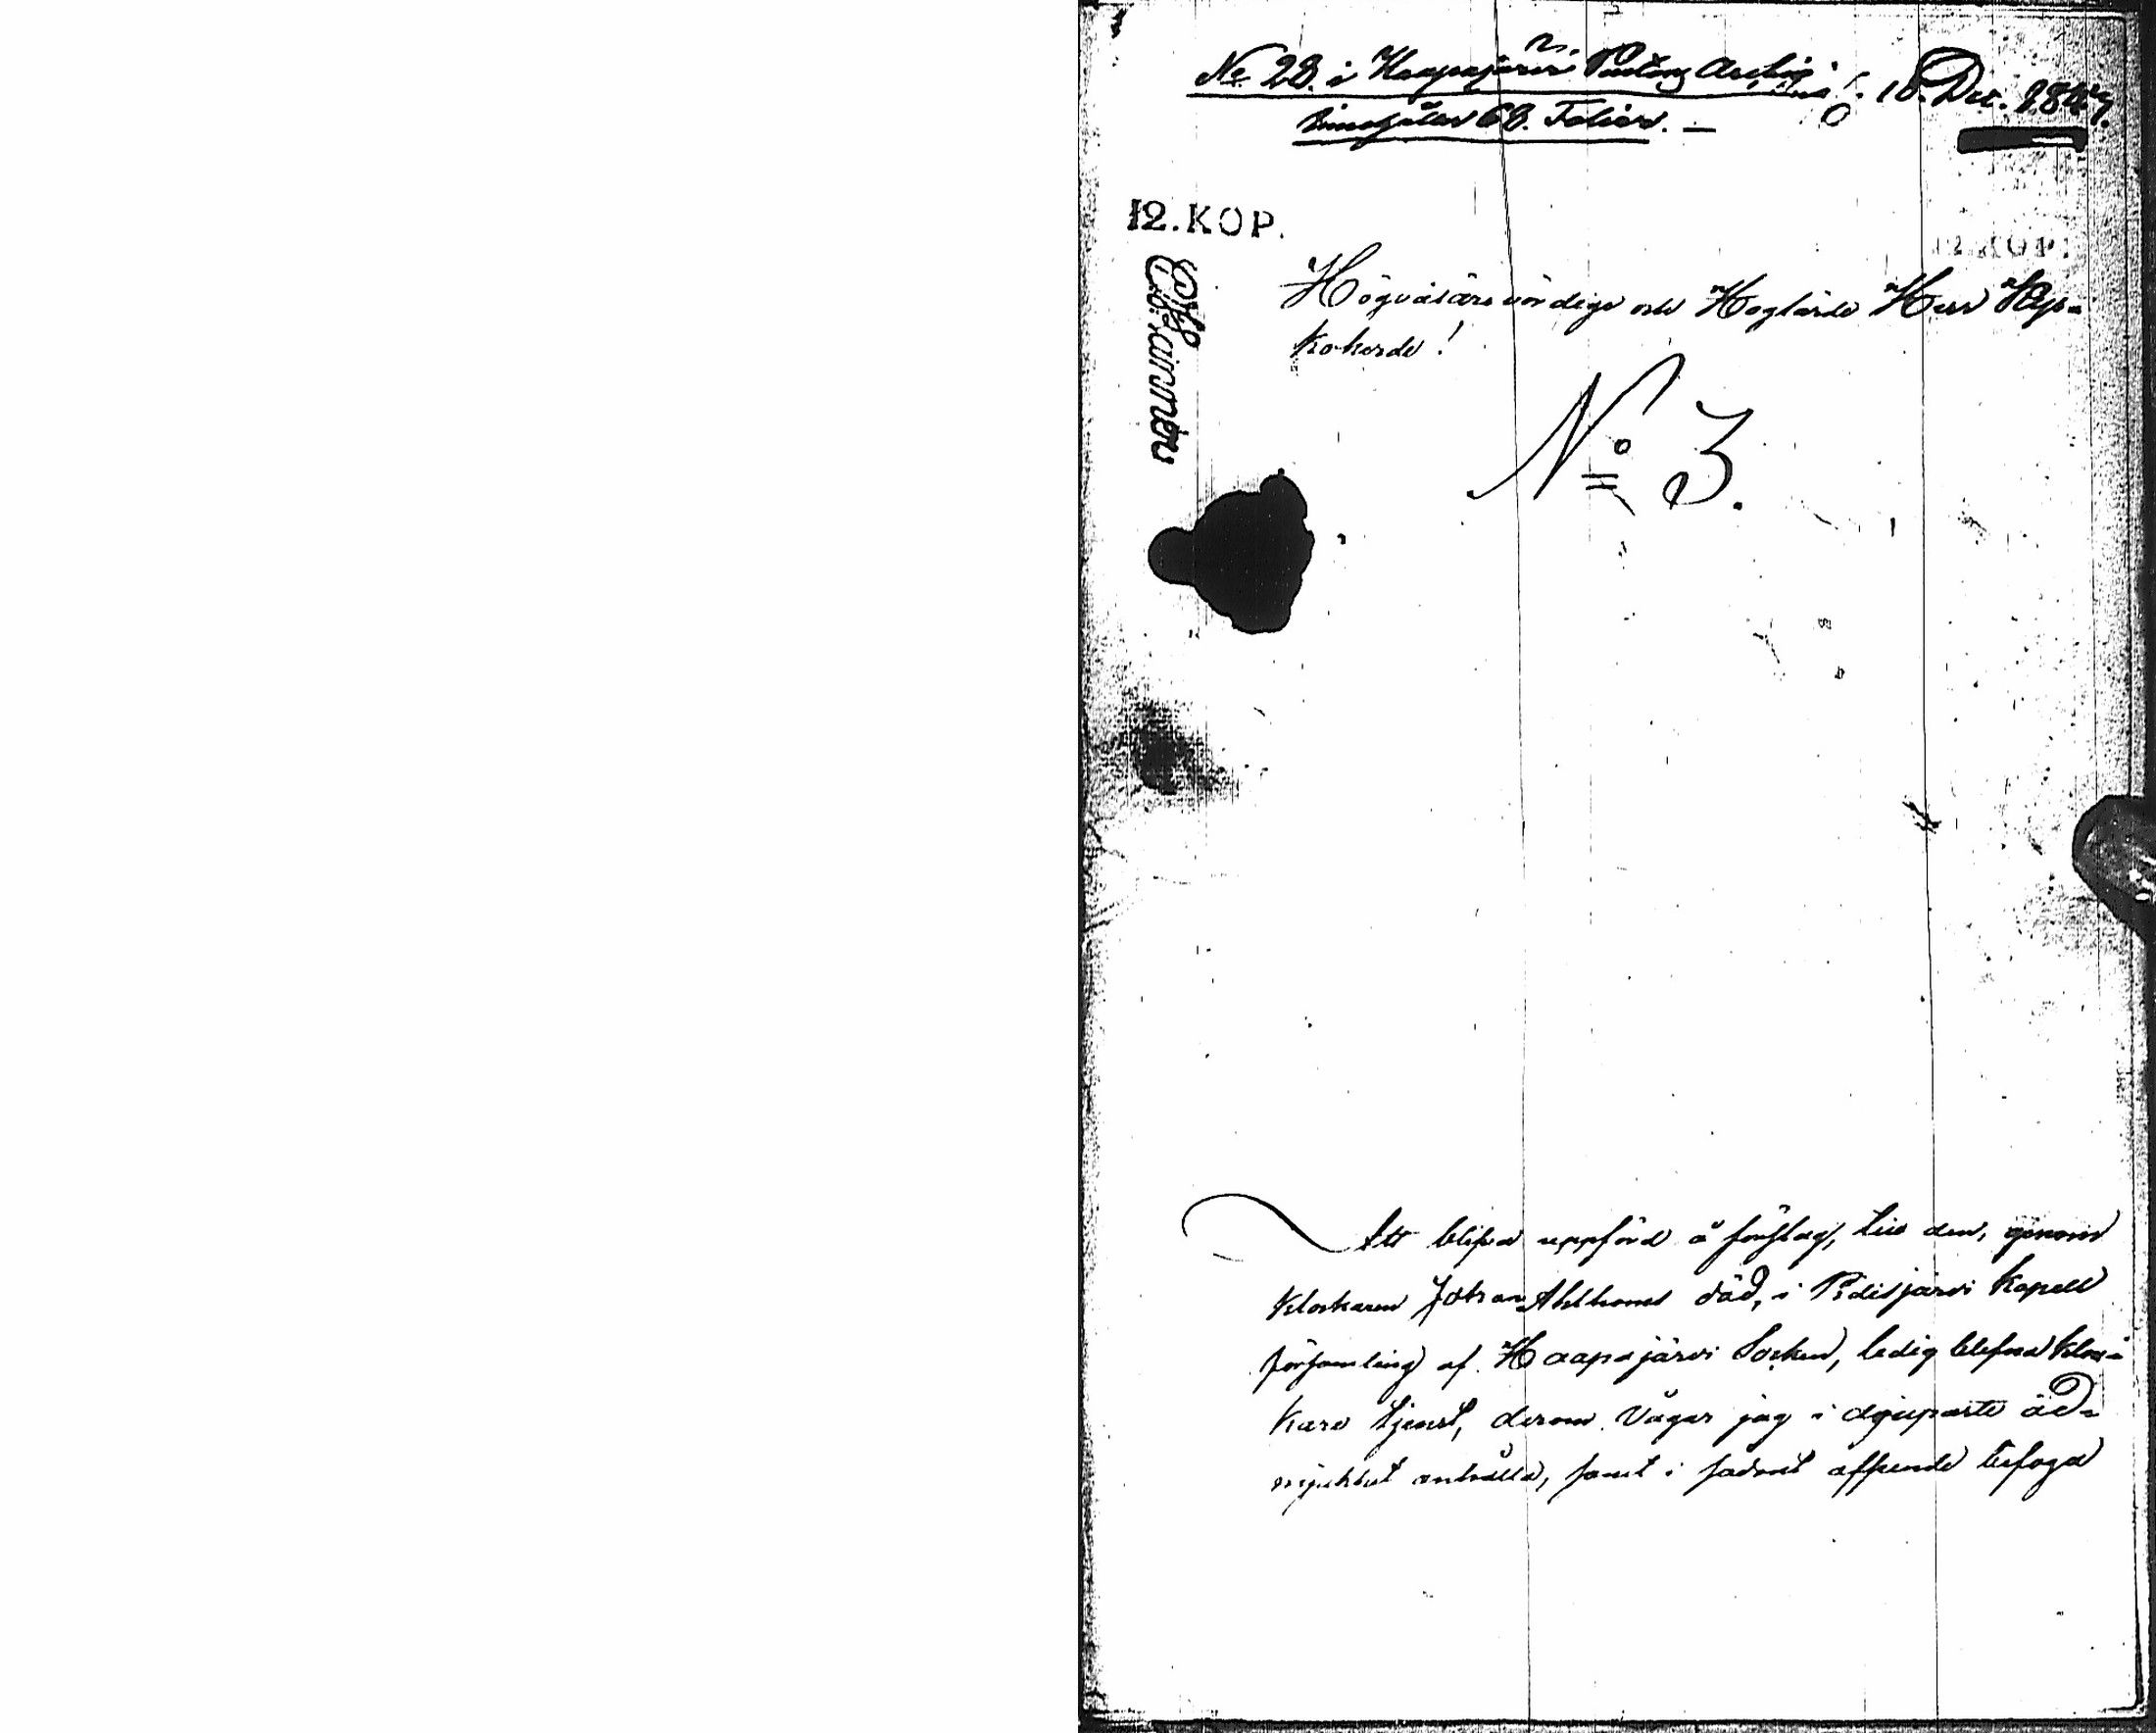 No 28. i Haapajärvi Pastors Archiv
innehåller 68. Folier. —
18 Dec. 1847.
12. KOP.
12 KOP.
Högvälärevördige och Höglärde Herr Kyr-
koherde!
No 3.
Att blifva uppförd å förslag, till den, genom
klockaren Johan Ahlholms död, i Pidisjärvi Kapell
församling af Haapajärvi Socken, ledig blefna kloc-
kare tjenst, derom vågar jag i djupaste öd-
mjukhet anhålla, samt i sådant afseende bifoga